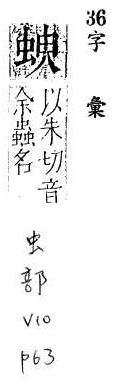 36字 彙
以朱切音
余蟲名
虫
部
V10
P63